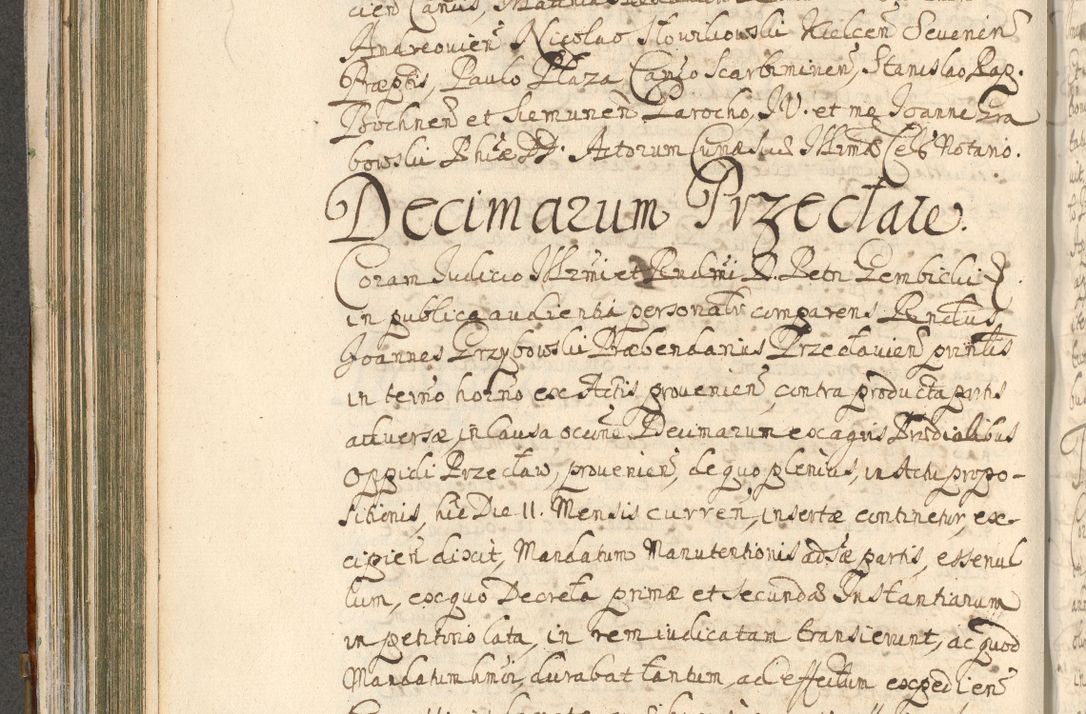 Andreovien̄ Nicolao Słowikowski Kielcen̄ Sevenien̄
Præptis, Paulo Płaza Canco Scarbimirien̄, Stanislao Rap.
Bochnen̄ et Parocho, I.V. et me Ioanne Gra
bowski Phiæ Dd. Actorum Curiæ Suæ Illrmæ Cels Notario.
Decimarum Przecław.
Coram Iudicio Illrmi et Rendmi D. Petri Gembicki
in publica audientia personalr comparens Rendus
Ioannes Grzybowski Præbendarius Przecłavien̄ prîntis
in termo hoerno ex Actis provenien̄, contra producta partis
adversæ, in Causa occune Decimarum ex agris Prædialibus
Oppidi Przecław, provenien̄, de quo plenius, in Actu propo-
sitionis, hic Die 11. Mensis curren̄, insertæ continetur, ex-
cipien̄ dixit, Mandatum Manutentionis adsæ partis, esse nul
lum, ex quo Decreta primæ et secundæ Instantiarum
in petitorio lata, in rem iudicatam transierunt, ac quod
Mandatum hmoi, durabat tantum, ad effectum expedien̄